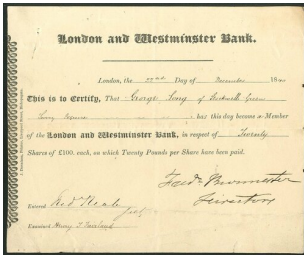 London and Westminster Bank.
London, the 22nd Day of December 18
This is to Certify, That George Long of Stockwell Green
Surrey Esquire has this day become a Member
of the London and Westminster Bank, in respect of Twenty
Shares of £100. each, on which Twenty Pounds per Share have been paid.
Director
Entered
Examined Henry